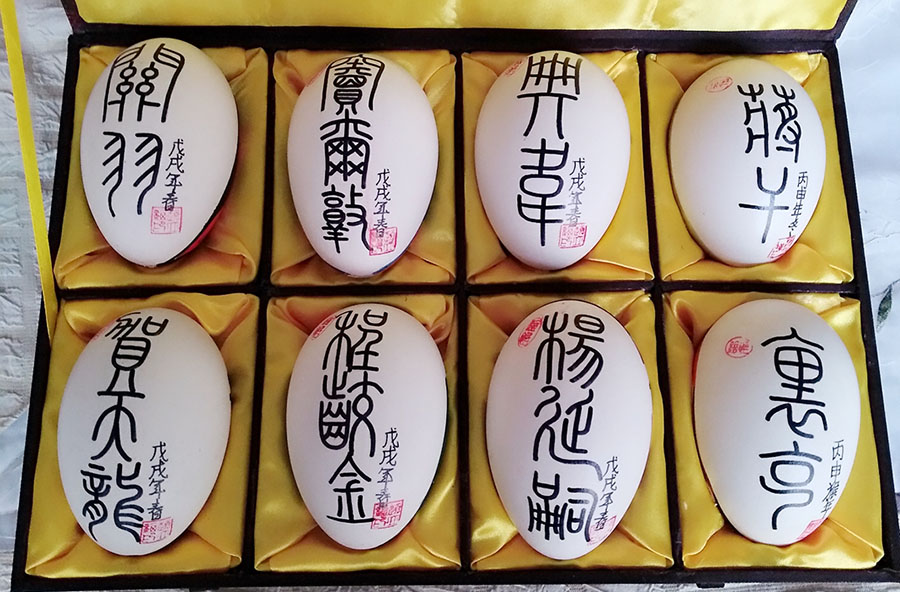 關羽
戊戌年春
竇爾敦
戊戌年春
典韋
戊戌年春
蔣干
丙申年冬
賀天龍
戊戌年春
程齩金
戊戌年春
楊延嗣
戊戌年春
裏亨
丙申猴年